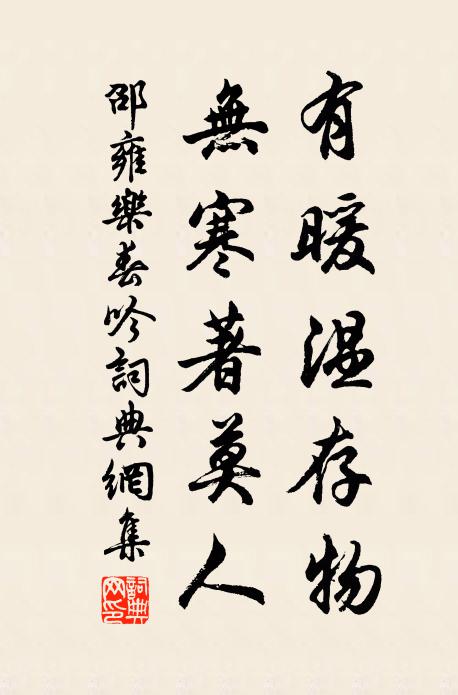 有暖溫存物
無寒著莫人
邵雍樂春吟詞典網集
詞典網印